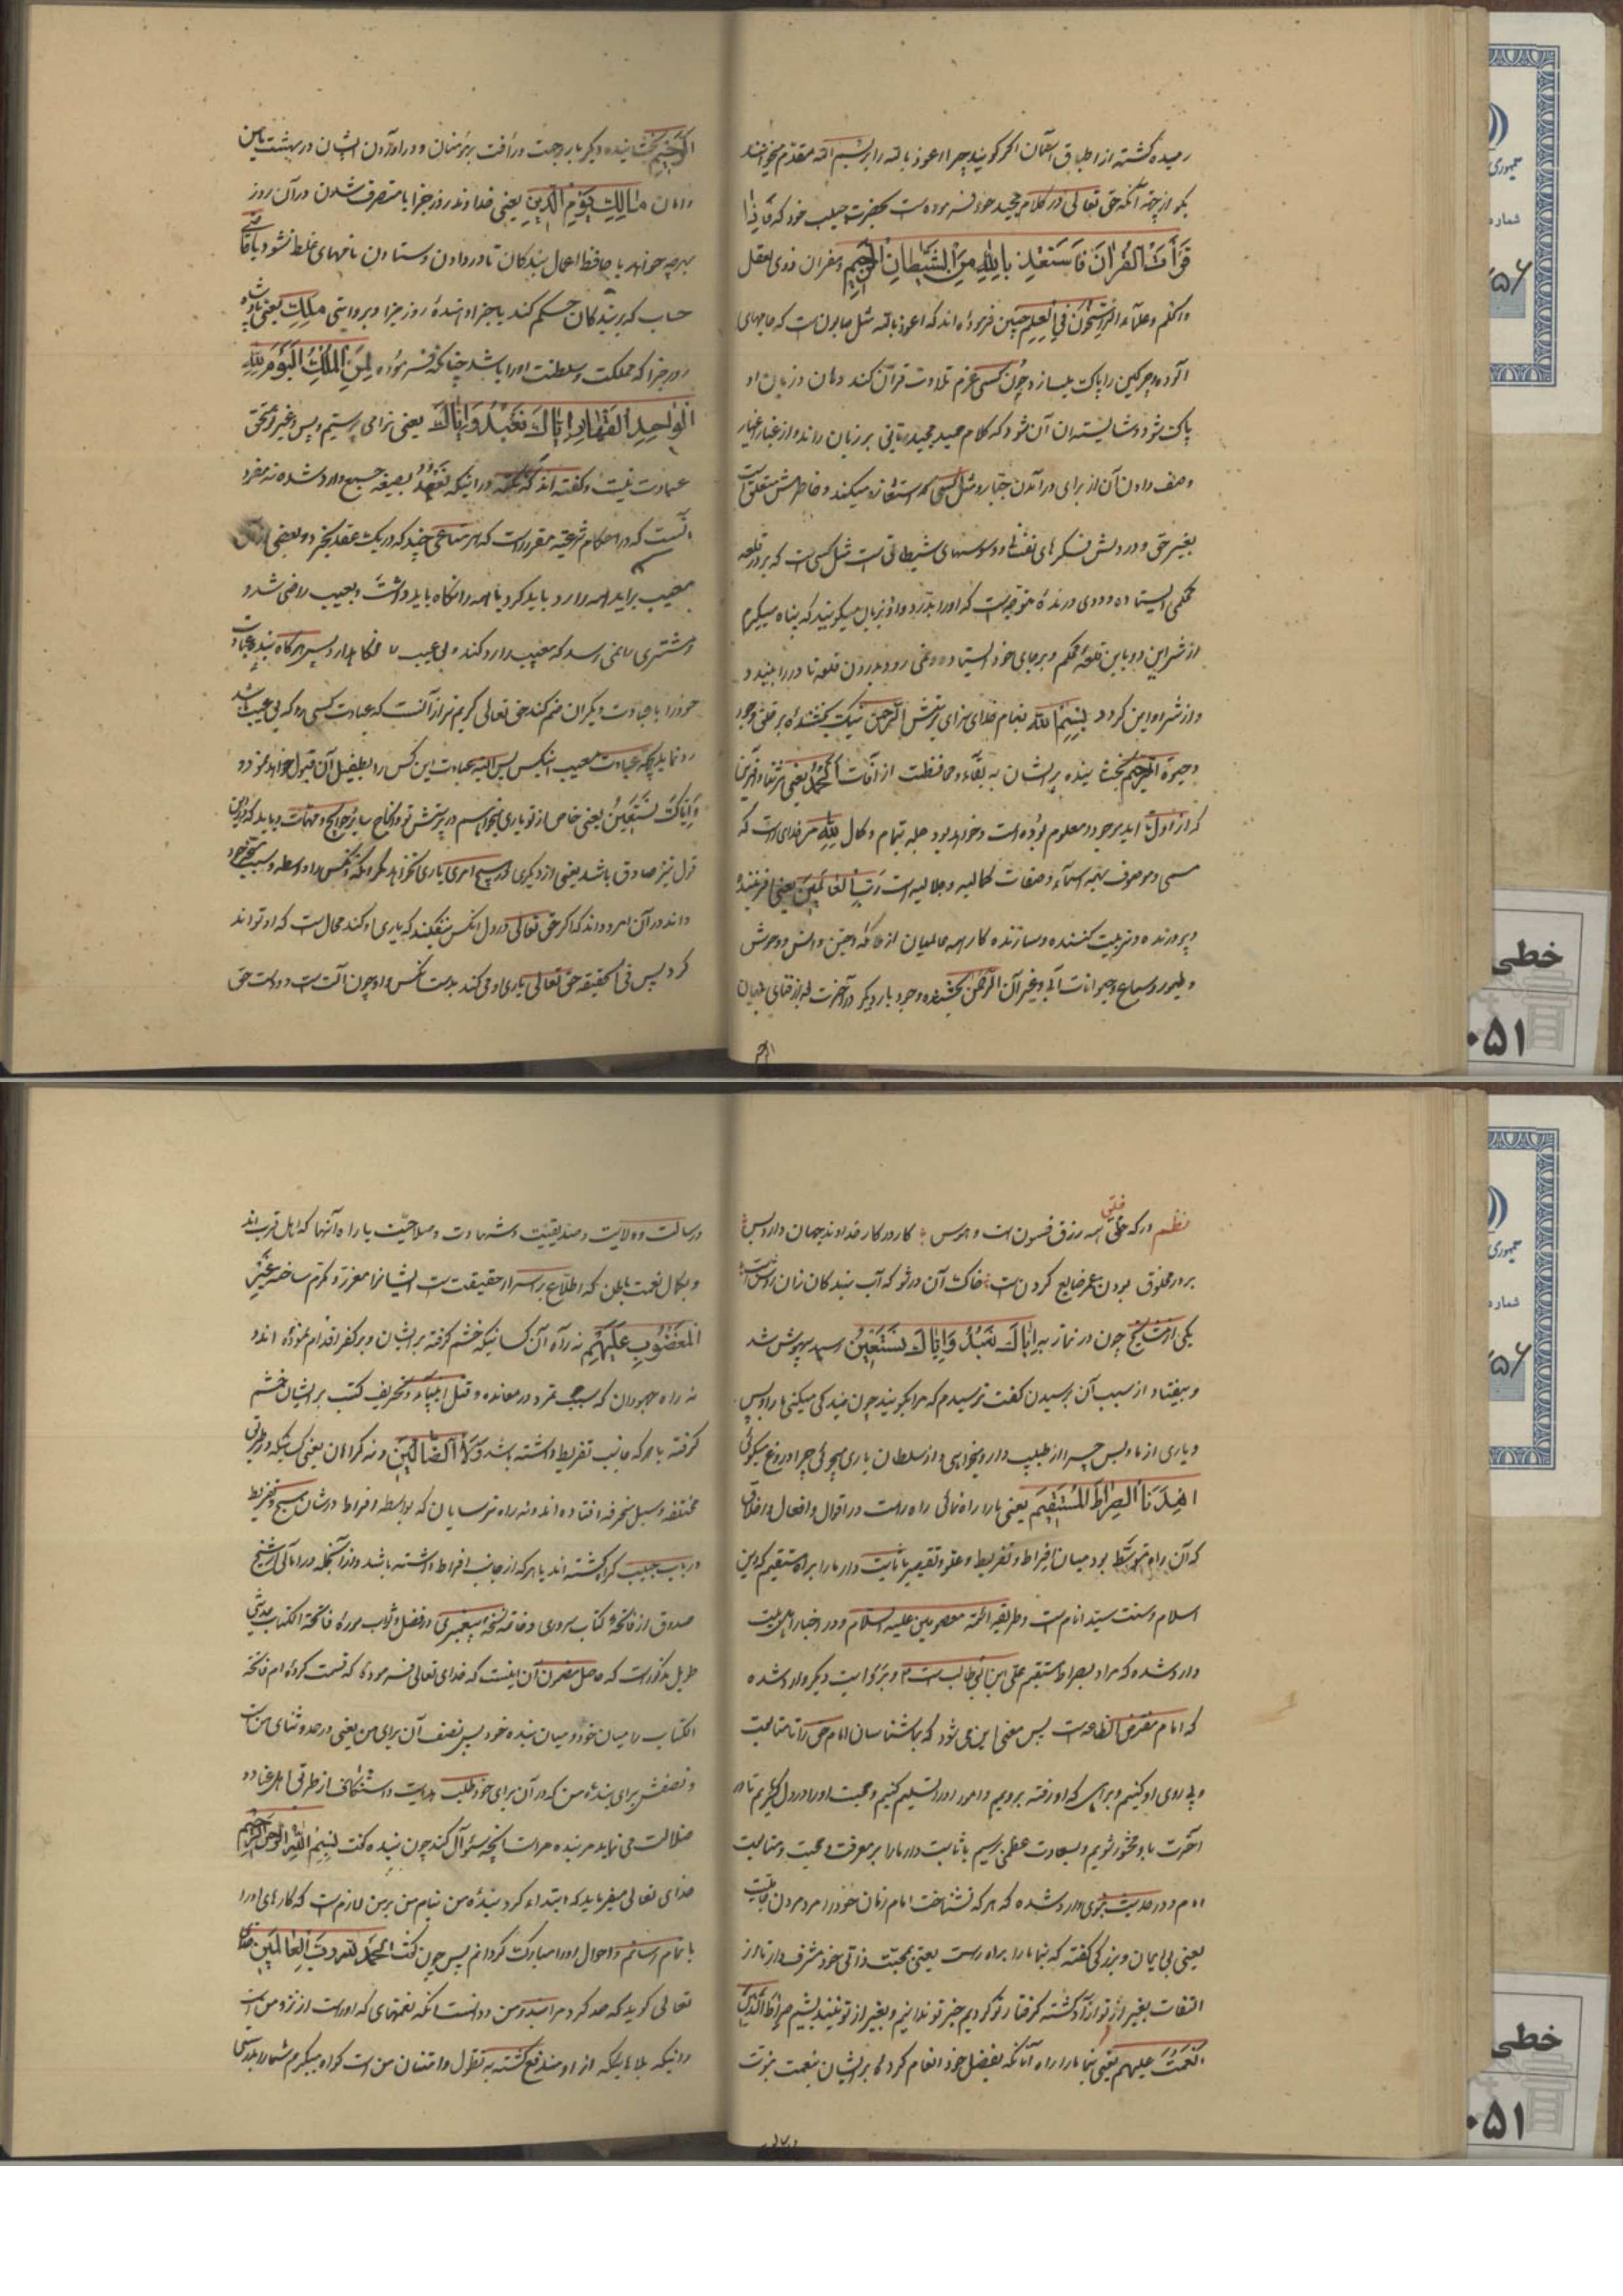 رسیده گشته از اطباق آسمان اگر گویند چرا اعوذ بالله را بر بسم الله مقدم میخوانند
بگو از جهة آنکه حق تعالی در کلام مجید خود فرموده است بحضرت حبیب خود که فَاِذا
قَرَأْتَ الْقُرْانَ فَاسْتَعِذْ بِاللهِ مِنَ الشَّیْطانِ الرَّجیمِ و مفسران ذوی العقل
و علماء الراسخون فی العلم چنین فرموده‌اند که اعوذ بالله مثل صابون است که جامهای
آلوده و چرکین را پاک میسازد و چون کسی عزم تلاوت قرآن کند دهان و زبان او
پاک شود و شایسته آن شود که کلام حمید مجید ربانی بر زبان راند و از غبار اغیار
وصف دادن آن از برای در آمدن جبار و مثل کسی که استعاذه میکند و خاطرش متعلق است
بغیر حق و در دلش فکرهای نفسانی و وسوسهای شیطانی است مثل کسی است که بر در قلعه
محکمی ایستاده و ددی درنده متوجه است که او را بدرد و او بزبان میگوید که پناه میگیرم
از شر این دد باین قلعه محکم و بر جای خود ایستاده و نمی رود بدرون قلعه تا در را ببندد و
و از شر او ایمن گردد بِسْمِ اللهِ بنام خدای سزای پرستش الرَّحْمنِ نیک بخشنده بر خلق وجود
و حیوة الرَّحیمِ بخشاینده بر ایشان به بقاء و محافظت از آفات اَلْحَمْدُ یعنی هر ثنا و آفرین
که از ازل تا ابد موجود و معلوم بوده است و خواهد بود جمله بتمام و کمال لِلّهِ مر خدای راست که
مسمی و موصوف بهمه اسماء و صفات کمالیه و جلالیه است رَبِّ الْعالَمینَ یعنی آفریننده
و پرورنده و تربیت کننده و سازنده کار همه عالمیان از ملائکه و جن و انس و وحوش
و طیور و سباع و حیوانات آبی و غیر آن الرَّحْمنِ بخشنده وجود بار دیگر در آخرت بعد از فنای جهان
الرحیم
الرَّحیمِ بخشاینده دیگر بار برحمت و رأفت بر مؤمنان و در آوردن ایشان در بهشت بامن
و امان مالِكِ یَوْمِ الدّینِ یعنی خداوند روز جزا یا متصرف شدن در آن روز
بهرچه خواهد یا حافظ اعمال بندگان تا در دادن و ستادن نامهای غلط نشود یا قاضی
حساب که بر بندگان حکم کند یا جزا دهنده روز جزا و بروایتی مَلِكِ یعنی پادشاه
روز جزا که مملکت و سلطنت او را باشد چنانکه فرموده لِمَنِ الْمُلْكُ الْیَوْمَ لِلّهِ
الْواحِدِ الْقَهّارِ اِیّاكَ نَعْبُدُ وَاِیّاكَ یعنی ترا می پرستیم و بس و غیر تو مستحق
عبادت نیست و گفته‌اند که نکته در اینکه نَعْبُدُ بصیغه جمع وارد شده نه مفرد
آنست که در احکام شرعیه مقرر است که هر متاعی چند که در یک عقد بخرد و بعضی از آن
معیب برآید همه را رد باید کرد یا همه را نگاه باید داشت و بعیب راضی شد و
مشتری را نمی رسد که معیب را رد کند و بی عیب را نگاهدارد پس هرگاه بنده عبادت
خود را با عبادت دیگران ضم کند حق تعالی کریم تر از آنست که عبادت کسی را که بی عیب باشد
رد نماید بجهة عبادت معیب اینکس پس البته عبادت این کس را بطفیل آن قبول خواهد نمود و
وَاِیّاكَ نَسْتَعینُ یعنی خاص از تو یاری میخواهیم در پرستش تو و انجاح سایر حوایج و مهمات و باید که در این
قول نیز صادق باشد یعنی از دیگری در هیچ امری یاری نخواهد مگر آنکه آنکس را واسطه و سبب
داند در آن امر و داند که اگر حق تعالی در دل آنکس نیفکند که یاری او کند محال است که او تواند
کرد پس فی الحقیقه حق تعالی یاری او می کند بدست آنکس و او چون آلت است و دست حق
نظم در که خلق همه زرق و فسون است و هوس کار درگاه خداوند جهان دارد و بس
بر در مخلوق بودن عمر ضایع کردن است خاک آن در شو که آب بندگان زان روشن است
یکی از مشایخ چون در نماز به اِیّاكَ نَعْبُدُ وَاِیّاكَ نَسْتَعینُ رسید بیهوش شد
و بیفتاد از سبب آن پرسیدن گفت ترسیدم که مرا بگویند چون بندگی میکنی ما را و بس
و یاری از ما و بس چرا از طبیب دارو میخواهی و از سلطان یاری میجوئی چرا دروغ میگوئی
اِهْدِنَا الصِّراطَ الْمُسْتَقیمَ یعنی ما را راه نمائی راه راست در اقوال و افعال و اخلاق
که آن راه متوسط بود میان افراط و تفریط و غلو و تقصیر یا ثابت دار ما را براه مستقیم که دین
اسلام و سنت سید انام است و طریقه ائمه معصومین علیه السلام و در اخبار اهل بیت
وارد شده که مراد بصراط مستقیم علی ابن ابی طالب است و بروایت دیگر وارد شده
که امام مفترض الطاعه است پس معنی این می شود که بما شناسان امام حق را تا متابعت
و پیروی او کنیم و براهی که او رفته برویم و امور او را تسلیم کنیم و محبت او را در دل گیریم تا در
آخرت با او محشور شویم و بسعادت عظمی برسیم یا ثابت دار ما را بر معرفت و محبت و متابعت
امام و در حدیث نبوی وارد شده که هر که نشناخت امام زمان خود را مرد مردن جاهلیت
یعنی بی ایمان و بزرگی گفته که بنما ما را براه راست یعنی بمحبت ذاتی خود مشرف دار تا از
التفات بغیر از تو آزاد گشته گرفتار تو گردیم جز تو ندانیم و بغیر از تو نیندیشیم صِراطَ الَّذینَ
اَنْعَمْتَ عَلیهم یعنی بنما ما را راه آنانکه بفضل خود انعام کرده بر ایشان بنعمت نبوت
و رسالت و ولایت و صدیقیت و شهادت و صلاحیت یا راه آنها که اهل قرب‌اند
و بکمال نعمت باطن که اطلاع بر اسرار حقیقت است ایشانرا معزز و مکرم ساخته غَیْرِ
الْمَغْضُوبِ عَلَیْهِمْ نه راه آن کسانیکه خشم گرفته بر ایشان و بر کفر اقدام نموده اند و
نه راه جهودان که بسبب تمرد و معانده و قتل انبیاء و تحریف کتب بر ایشان خشم
گرفته یا هرکه جانب تفریط داشته باشد وَلَا الضّالّینَ و نه گمراهان یعنی کسانیکه در طرق
مختلفه و سبل منحرفه افتاده‌اند و نه راه ترسایان که بواسطه افراط در شان مسیح و تفریط
در باب حبیب گمراه گشته‌اند یا هرکه از جانب افراط داشته باشد و از آنجمله در امالی شیخ
صدوق از فاتحه کتاب سروری و خاتمه نسخه پیغمبری در فضل و ثواب سوره فاتحة الکتاب حدیثی
طویل مذکور است که حاصل مضمون آن اینست که خدای تعالی فرموده که قسمت کرده‌ام فاتحة
الکتاب را میان خود و میان بنده خود پس نصف آن برای من یعنی در حمد و ثنای من است
و نصفش برای بنده من که در آن برای خود طلب هدایت و استنکاف از طرق اهل عناد و
ضلالت می نماید مر بنده مراست آنچه سئوال کند چون بنده گفت بِسْمِ اللهِ الرَّحْمنِ الرَّحیمِ
خدای تعالی میفرماید که ابتداء کرد بنده من بنام من بر من لازم است که کارهای او را
باتمام رسانم و احوال او را مبارک گردانم پس چون گفت اَلْحَمْدُ لِلّهِ رَبِّ الْعالَمینَ خدای
تعالی گوید که حمد کرد مرا بنده من و دانست آنکه نعمتهای که او راست از نزد من است
و اینکه بلاهائیکه از او مندفع گشته به تطول و امتنان من است گواه میگیرم شما را بدرستی
جمهوری
شماره
خطی
۰۵۱
جمهوری
شماره
خطی
۰۵۱